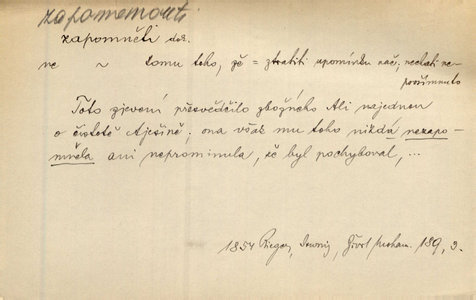 zapomenouti
zapomněti dok.
ne ~ komu toho, že = ztratiti upomínku nač; nechati ne-
povšimnuto
Toto zjevení přesvědčilo zbožného Ali najednou
o čistotě Aješině; ona však mu toho nikdá nezapo-
mněla ani neprominula, že byl pochyboval, ...
1854 Rieger, Irwing, Život Moham. 189, 3.